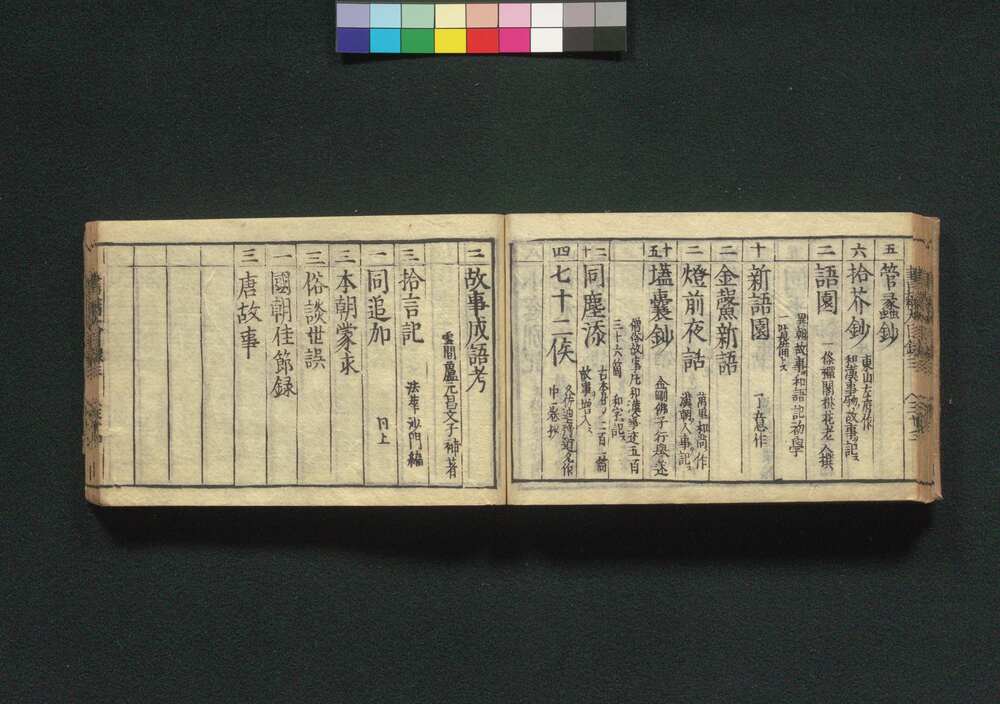 五 管蠡鈔
六 拾芥鈔 東山左府作 和漢事物故事ヲ記ス
二 語園 一條禪閤桃花老人撰
異朝故事ヲ和語ニ記初學
十 新語園 了意作
二 金鰲新語
二 燈前夜話 萬里和尚作 漢朝人事ヲ記ス
十五 壒囊鈔 金剛佛子行譽述
僧俗故事片和漢事迹五百三十六箇 和字ニ記ス
十二 同塵添 古本ノ外ニ二百一箇故事ヲ増入ス
四 七十二候
二 故事成語考
雲間盧元昌文子補著
三 拾言記 法華沙門編
一 同追加 同上
三 本朝蒙求
三 俗談世誤
一 國朝佳節録
三 唐故事